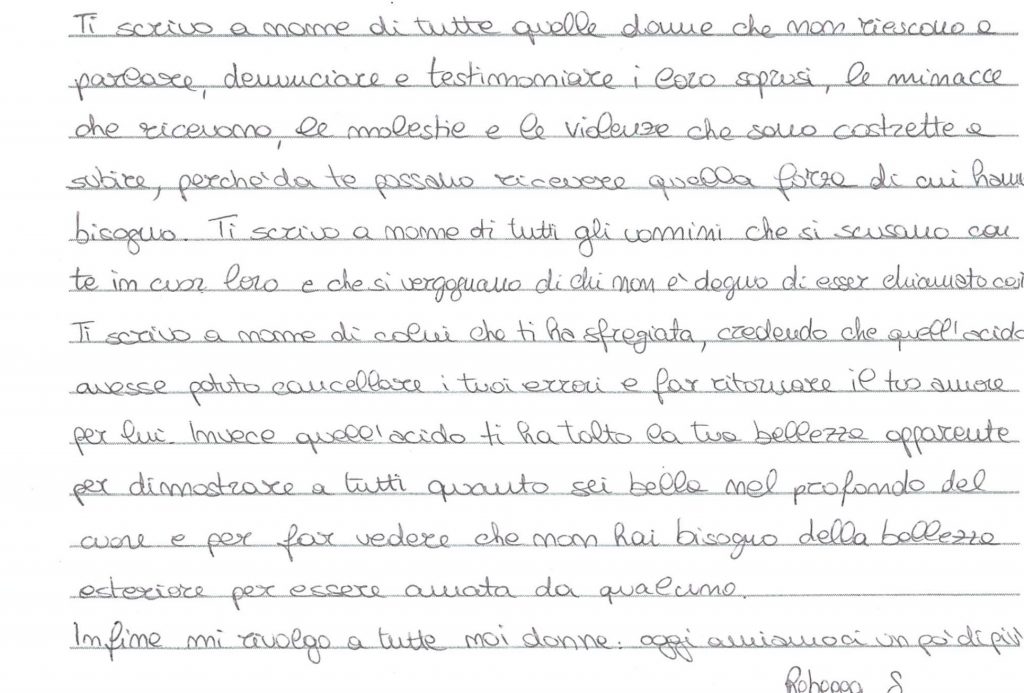 Ti scrivo a nome di tutte quelle donne che non riescono a
parlare, denunciare e testimoniare i loro soprusi, le minacce
che ricevono, le molestie e le violenze che sono costrette a
subire, perché da te possano ricevere quella forza di cui hann
bisogno. Ti scrivo a nome di tutti gli uomini che si scusano con
te in cuor loro e che si vergognano di chi non è degno di esser chiamato così
Ti scrivo a nome di colui che ti ha sfregiata, credendo che quell'acido
avesse potuto cancellare i tuoi errori e far ritornare il tuo amore
per lui. Invece quell'acido ti ha tolto la tua bellezza apparente
per dimostrare a tutti quanto sei bella nel profondo del
cuore e per far vedere che non hai bisogno della bellezza
esteriore per essere amata da qualcuno.
Infine mi rivolgo a tutte noi donne: oggi amiamoci un po' di più
S